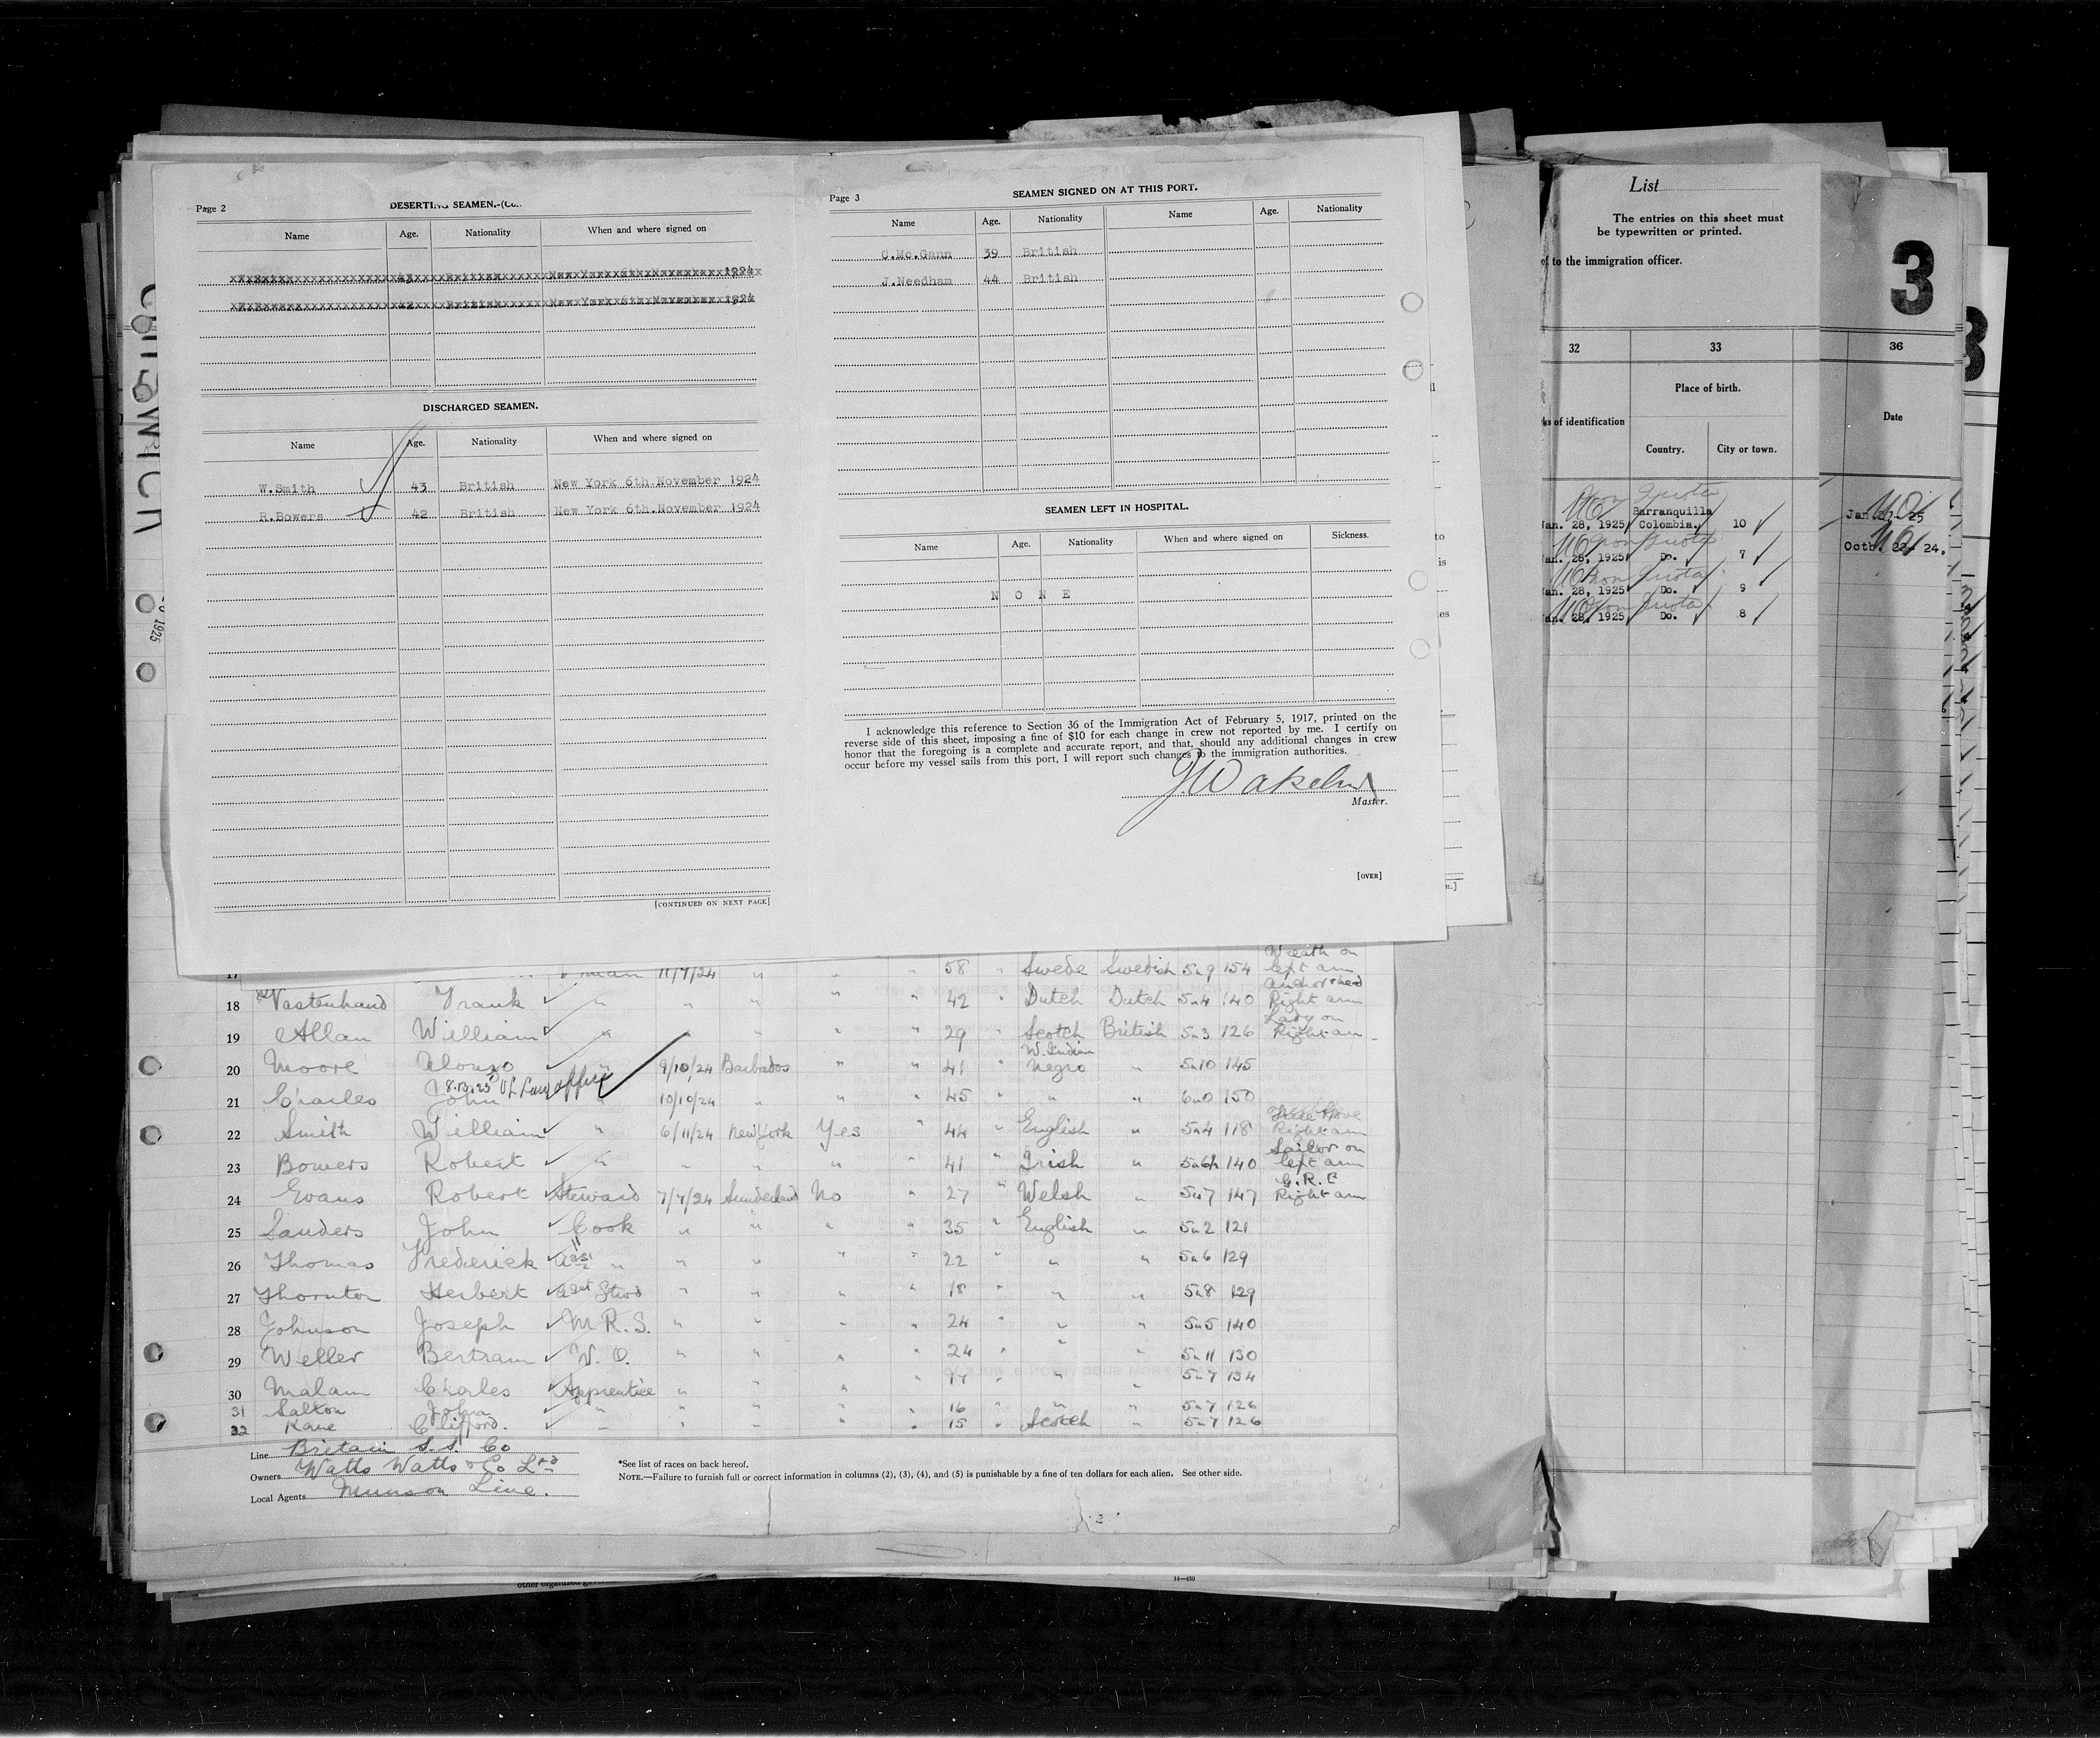 Page 2
DESERTING SEAMEN.-(Co
Name Age. Nationality When and where signed on
W.Smith 43 British New York 6th November 1924
R.Bowers 42 British New York 6th November 1924
DISCHARGED SEAMEN.
Name Age. Nationality When and where signed on
W.Smith 43 British New York 6th November 1924
R.Bowers 42 British New York 6th.November 1924
[CONTINUED ON NEXT PAGE]
Page 3
SEAMEN SIGNED ON AT THIS PORT.
Name Age. Nationality Name Age. Nationality
C.Mc.Gann 39 British
J.Needham 44 British
SEAMEN LEFT IN HOSPITAL.
Name Age. Nationality When and where signed on Sickness.
N O N E
I acknowledge this reference to Section 36 of the Immigration Act of February 5, 1917, printed on the
reverse side of this sheet, imposing a fine of $10 for each change in crew not reported by me. I certify on
honor that the foregoing is a complete and accurate report, and that, should any additional changes in crew
occur before my vessel sails from this port, I will report such changes to the immigration authorities.
Master.
[OVER]
List
The entries on this sheet must
be typewritten or printed.
to the immigration officer.
3
32 33 36
Place of birth.
of identification Date
Country. City or town.
Non Quota
Barranquilla
Jan. 28, 1925 Colombia. 10 Jan.27-25
Non Quota
Jan. 28, 1925 Do. 7 Octb. 22- 24.
Non Quota
Jan. 28, 1925 Do. 9
Non Quota
Jan. 28, 1925 Do. 8
1925
17 11/7/24 " " " 58 " Swede Swedish 5"9 154 Wreath on left arm
18 Vastenhaud Frank " " " " " 42 " Dutch Dutch 5"4 140 Anchor & head Right arm
19 Allan William " " " " " 29 " Scotch British 5"3 126 Lady on Right arm
20 Moore Alonzo " 9/10/24 Barbados " " 41 " W. Indian Negro " 5"10 145
21 Charles John " 10/10/24 " " " 45 " " " 6"0 150
22 Smith William " 6/11/24 New York Yes " 44 " English " 5"4 118 Right arm
23 Bowers Robert " " " " " 41 " Irish " 5"6½ 140 Sailor on left arm
24 Evans Robert Steward 7/7/24 Sunderland No " 27 " Welsh " 5"7 147 G.R.E Right arm
25 Sanders John Cook " " " " 35 " English " 5"2 121
26 Thomas Frederick Asst " " " " " 22 " " " 5"6 129
27 Thornton Herbert Asst Stwd " " " " 18 " " " 5"8 129
28 Johnson Joseph M.R.S. " " " " 24 " " " 5"5 140
29 Weller Bertram W. O. " " " " 24 " " " 5"11 130
30 Malam Charles Apprentice " " " " 17 " " " 5"7 134
31 Salton John " " " " " 16 " " " 5"7 126
32 Kane Clifford. " " " " " 15 " Scotch " 5"7 126
Line Britain S.S. Co
Owners Watts Watts & Co Ltd
Local Agents Munson Line.
*See list of races on back hereof.
NOTE.—Failure to furnish full or correct information in columns (2), (3), (4), and (5) is punishable by a fine of ten dollars for each alien. See other side.